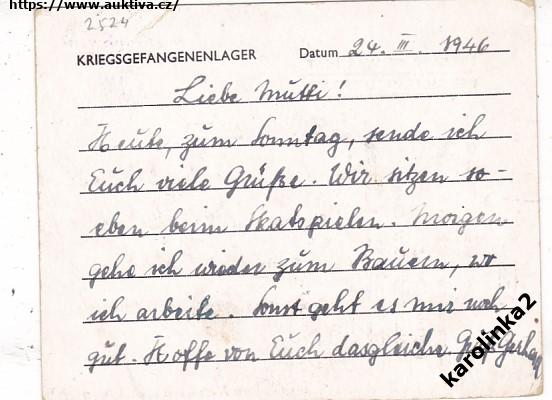 https://www.auktiva.cz/
2524
KRIEGSGEFANGENENLAGER Datum 24. III. 1946
Liebe Mutti!
Heute, zum Sonntag, sende ich
Euch viele Grüße. Wir sitzen so-
eben beim Skatspielen. Morgen
gehe ich wieder zum Bauern, wo
ich arbeite. Sonst geht es mir noch
gut. Hoffe von Euch dasgleiche. Gruß Gerhard
karolinka2